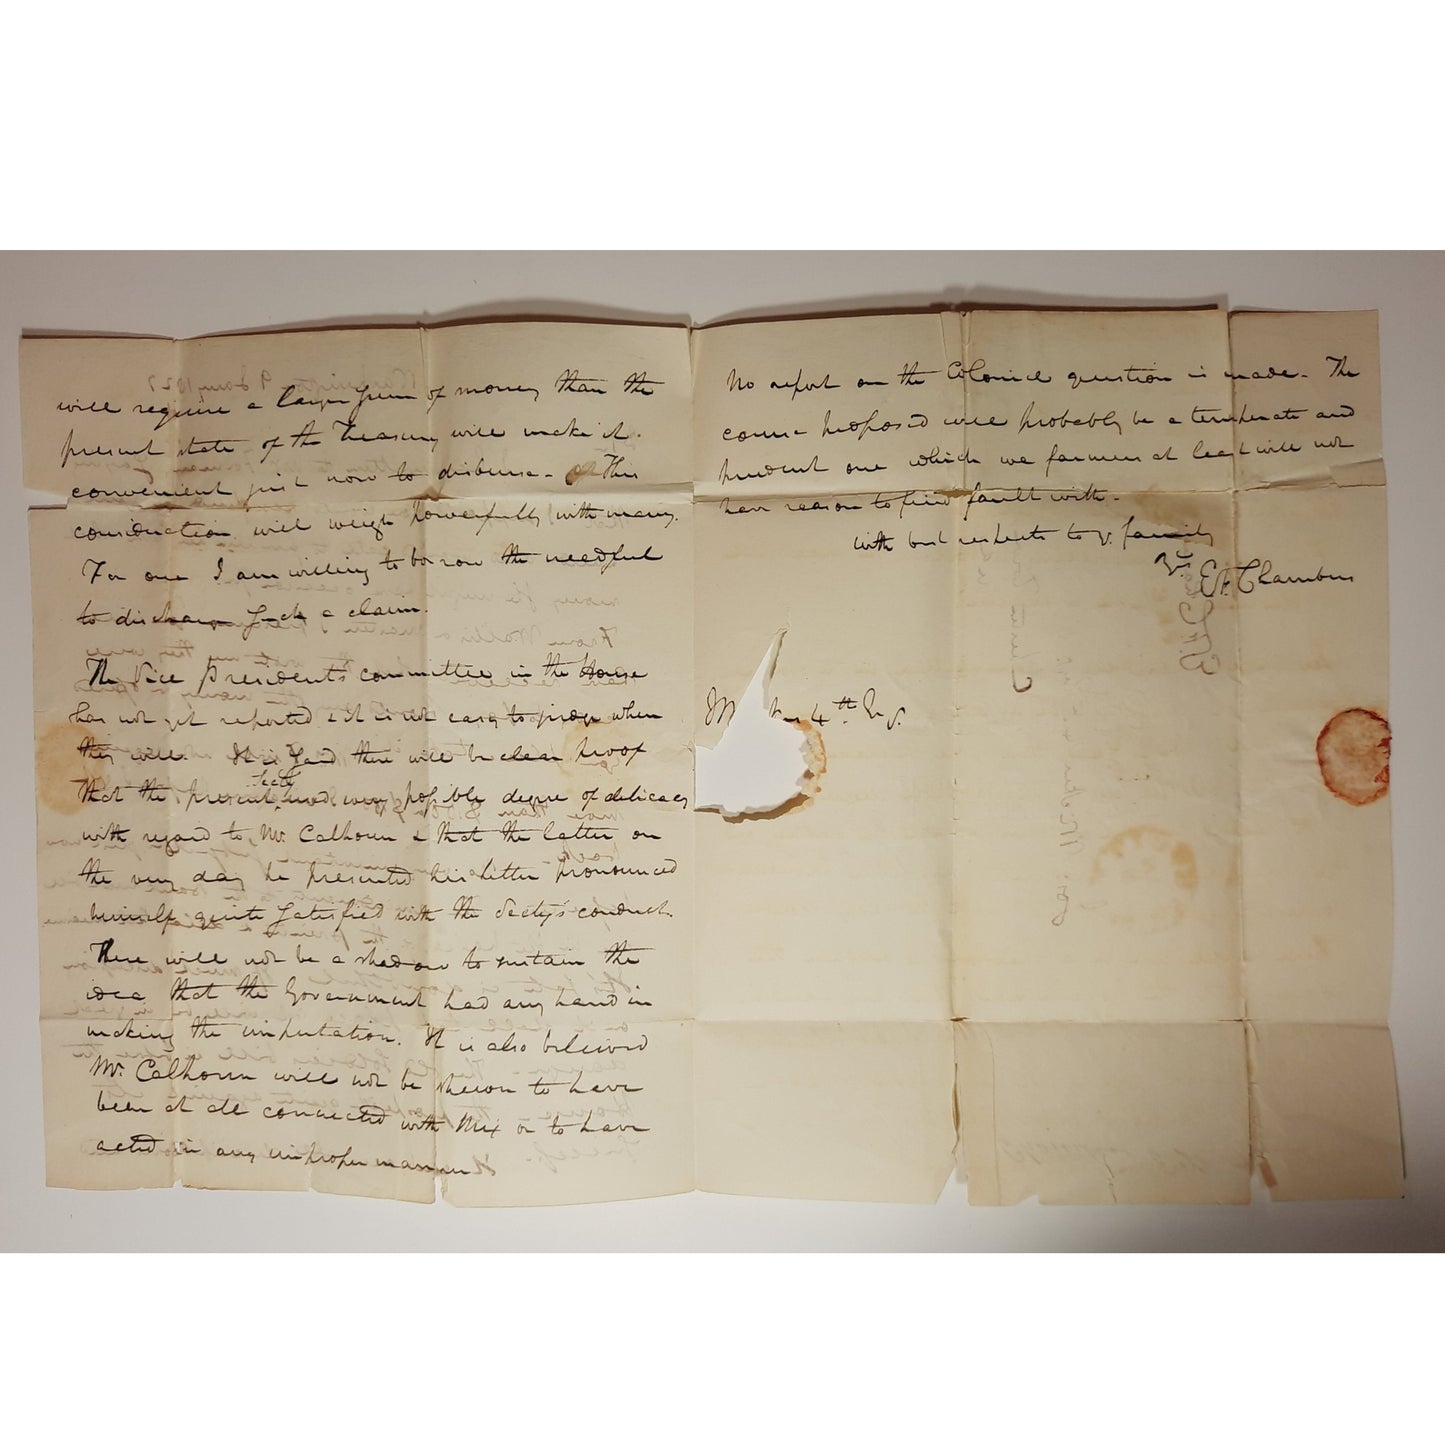 will require a larger sum of money than the
present state of the Treasury will make it
convenient just now to disburse - This
consideration will weigh powerfully with many.
For one I am willing to borrow the needful
to discharge such a claim.
The Vice President's committee in the House
has not yet reported & it is not easy to judge when
they will. It is said there will be clear proof
that the present Secty used every possible degree of delicacy
with regard to Mr. Calhoun & that the latter on
the very day he presented his letter pronounced
himself quite satisfied with the Secty's conduct.
There will not be a shadow to sustain the
idea that the Government had any hand in
making the imputation. It is also believed
Mr. Calhoun will not be shewn to have
been at all connected with Mix or to have
acted in any improper manner
No report on the Colonial question is made - The
course proposed will probably be a temperate and
prudent one which we farmers at least will not
have reason to find fault with -
with best respects to yr. family
Yrs
E F Chambers
4th. Esqr.